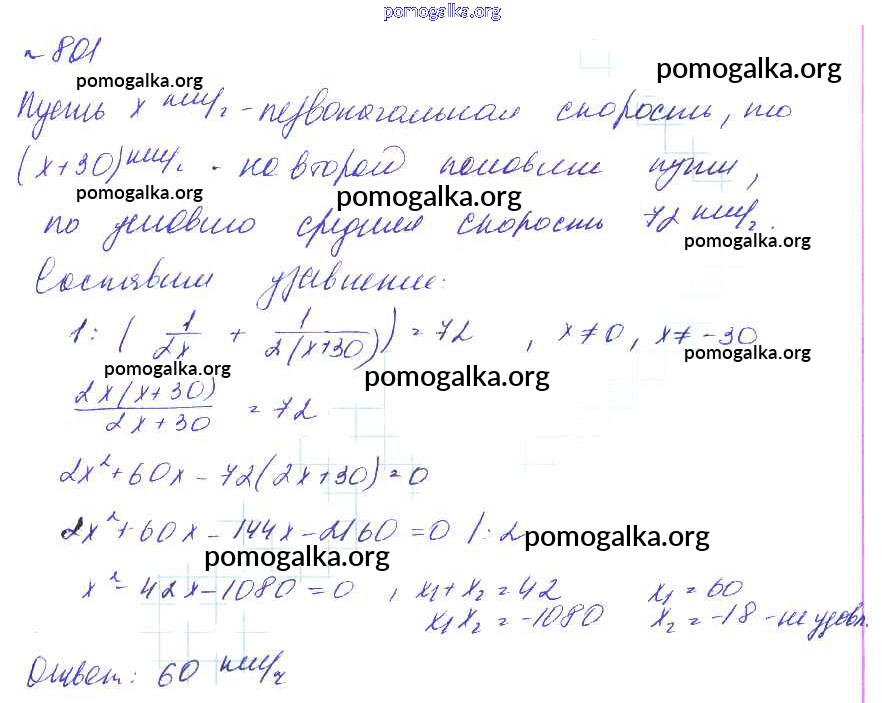 pomogalka.org
№ 801
pomogalka.org pomogalka.org
Пусть x км/ч - первоначальная скорость, то
(x+30) км/ч - на второй половине пути,
pomogalka.org pomogalka.org
по условию средняя скорость 72 км/ч.
pomogalka.org
Составим уравнение:
1 : ( 1/2x + 1/2(x+30) ) = 72 , x ≠ 0, x ≠ -30
pomogalka.org pomogalka.org pomogalka.org
2x(x+30)/2x+30 = 72
2x²+60x - 72(2x+30) = 0
2x²+60x - 144x - 2160 = 0 /: 2
pomogalka.org pomogalka.org
x² - 42x - 1080 = 0 , x₁ + x₂ = 42 x₁ = 60
x₁x₂ = -1080 x₂ = -18 - не удовл.
Ответ: 60 км/ч